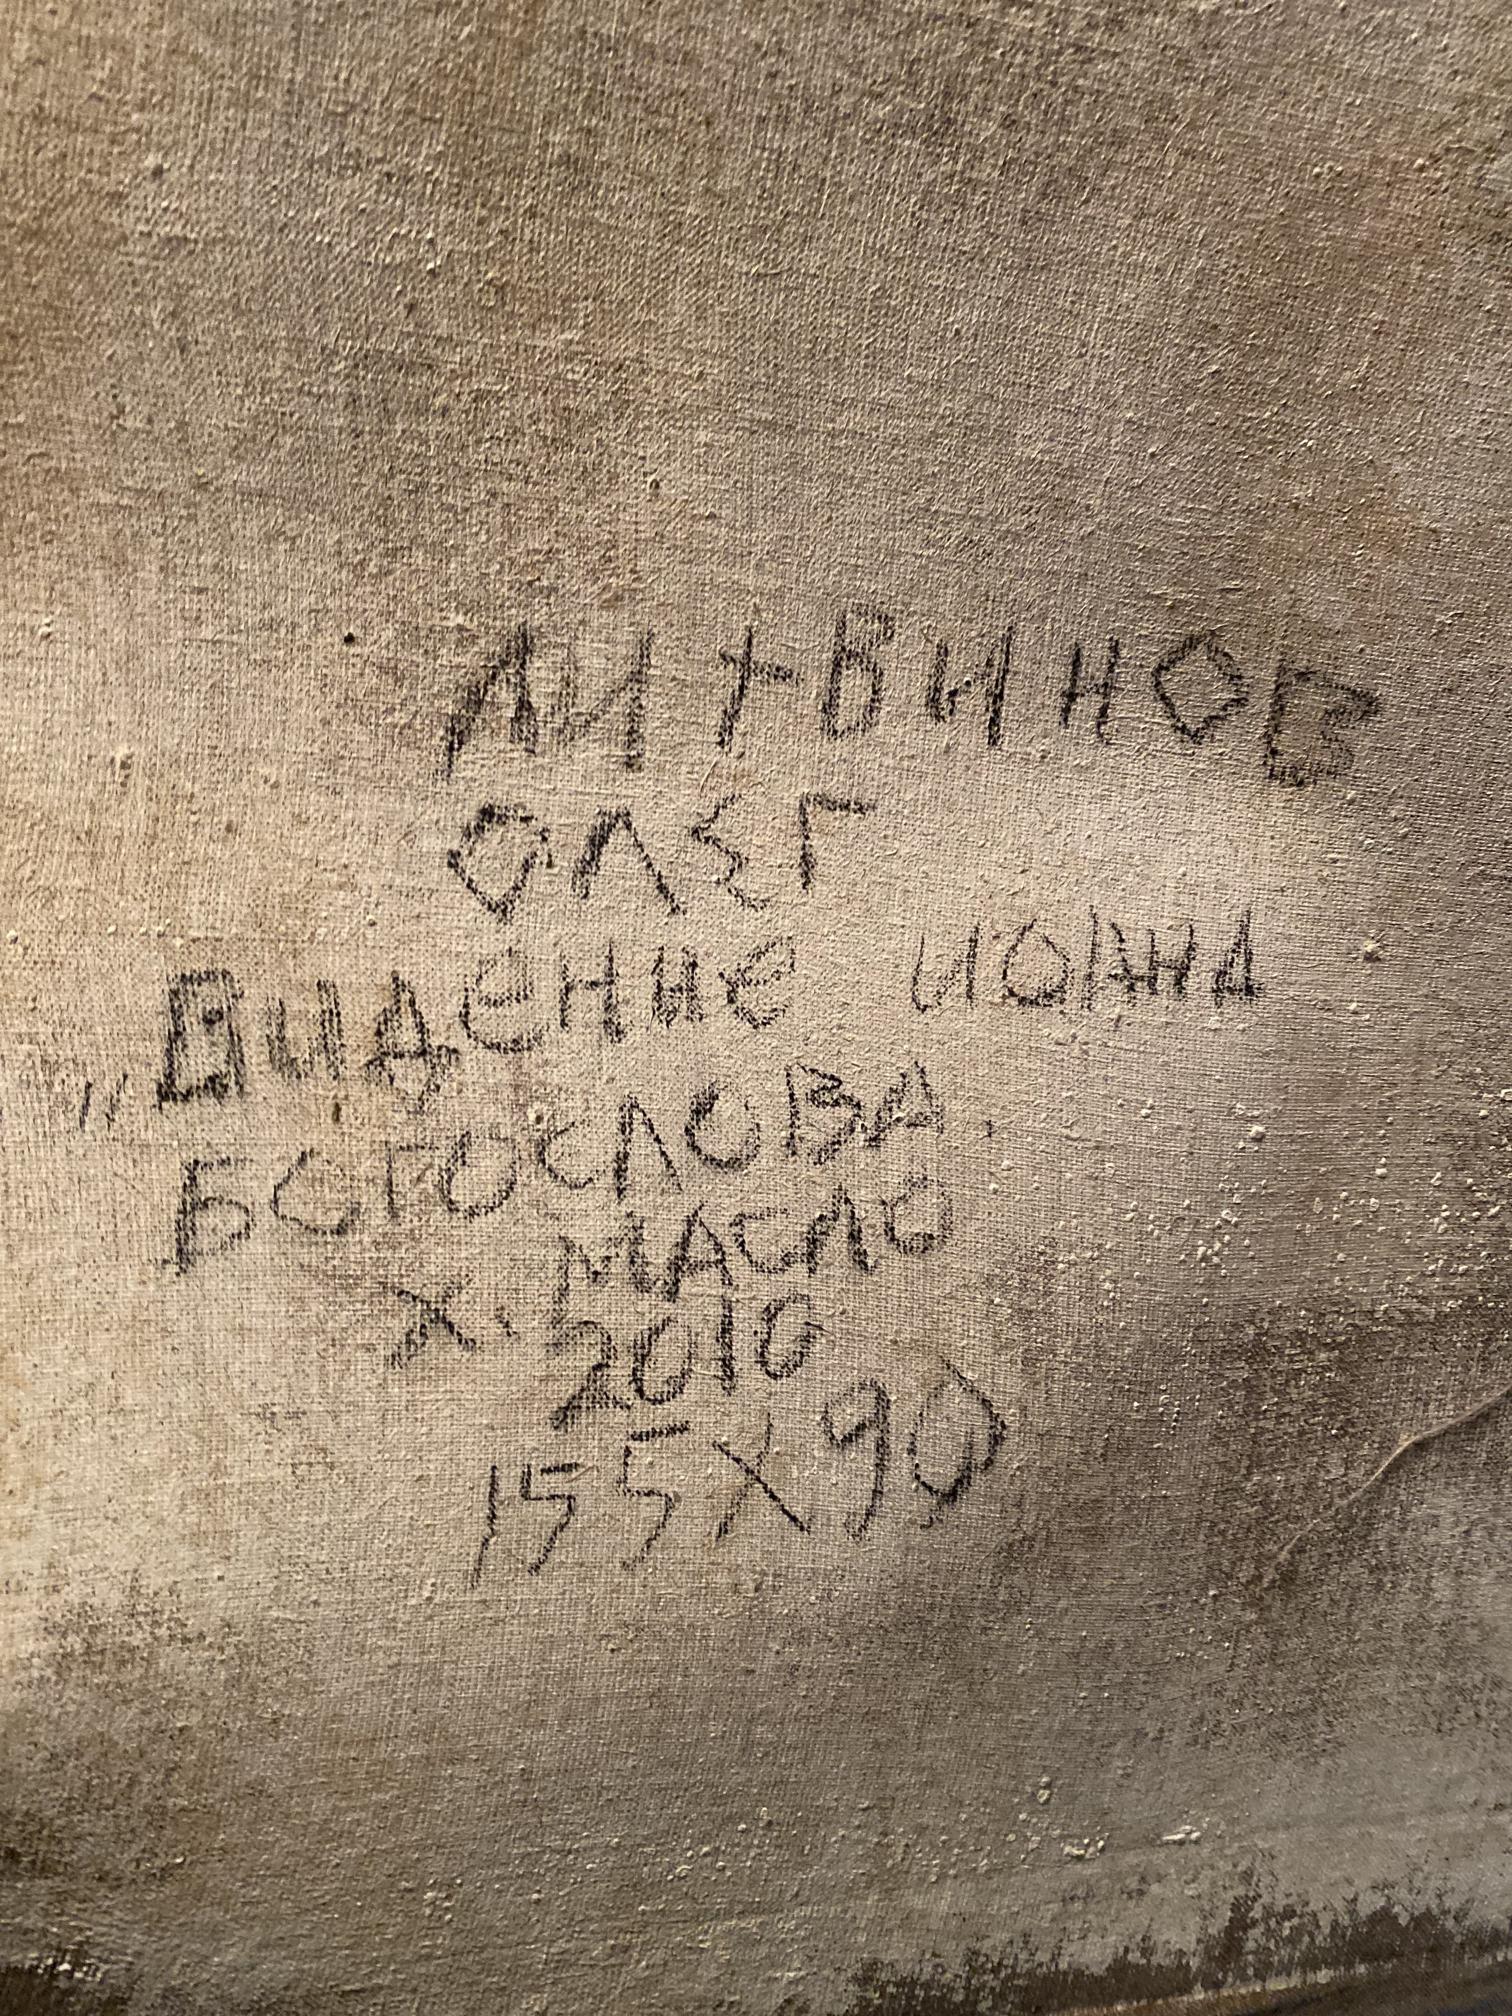 ЛИТВИНОВ
ОЛЕГ
„ВИДЕНИЕ ИОАНА
БОГОСЛОВА.
х. МАСЛО
2010
155X90